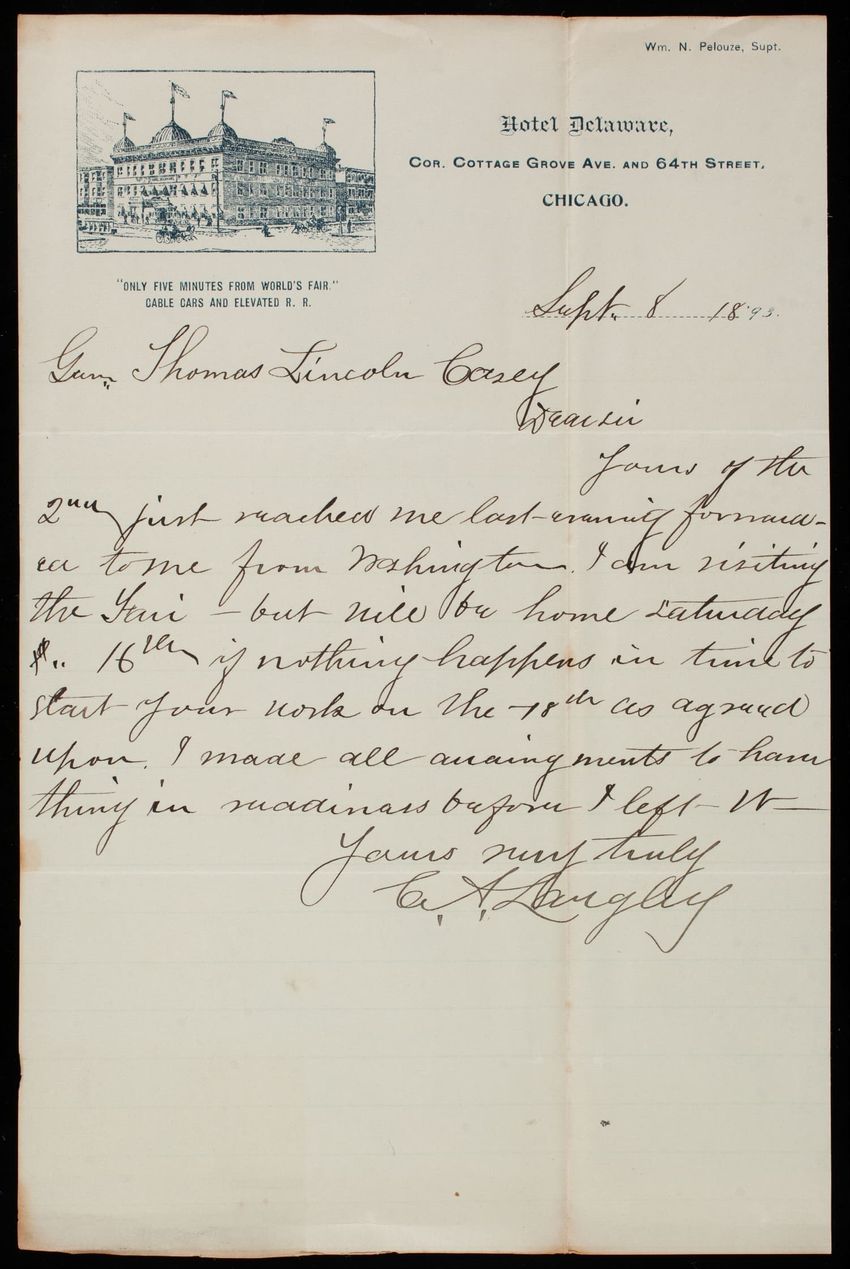 Wm. N. Pelouze, Supt.
Hotel Delaware,
COR. COTTAGE GROVE AVE. AND 64TH STREET.
CHICAGO.
"ONLY FIVE MINUTES FROM WORLD'S FAIR."
CABLE CARS AND ELEVATED R. R.
Sept. 8 1893.
Gen. Thomas Lincoln Casey
Dear sir
Yours of the
2nd just reached me last evening forward-
ed to me from Washington. I am visiting
the Fair - but will be home Saturday
16th if nothing happens in time to
start your work on the 18th as agreed
upon. I made all arraingments to have
thing in readiness before I left W—
Yours very truly
C. A. Langley